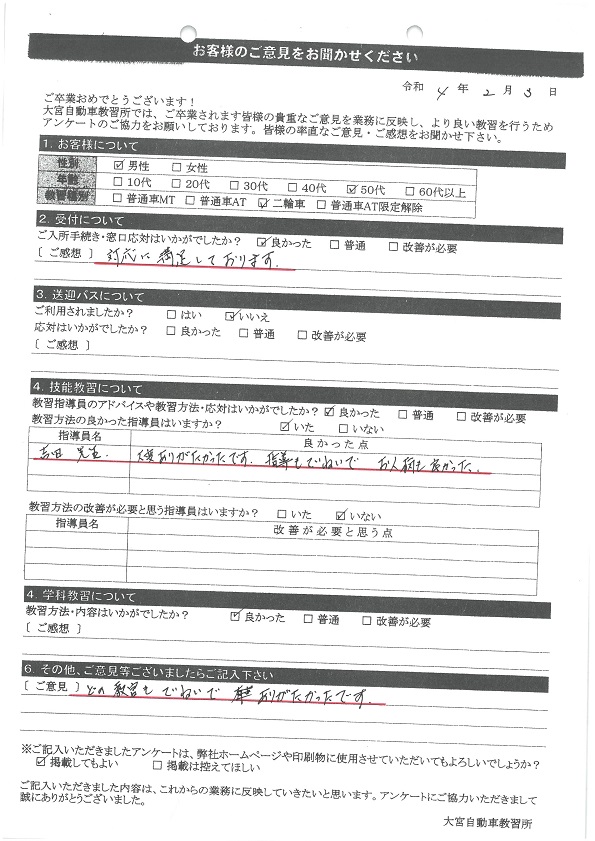 お客様のご意見をお聞かせください
令和 4 年 2 月 3 日
ご卒業おめでとうございます！
大宮自動車教習所では、ご卒業されます皆様の貴重なご意見を業務に反映し、より良い教習を行うため
アンケートのご協力をお願いしております。皆様の率直なご意見・ご感想をお聞かせ下さい。
1. お客様について
性別 ☑ 男性 □ 女性
年齢 □ 10代 □ 20代 □ 30代 □ 40代 ☑ 50代 □ 60代以上
教習種別 □ 普通車MT □ 普通車AT ☑ 二輪車 □ 普通車AT限定解除
2. 受付について
ご入所手続き・窓口応対はいかがでしたか？ ☑ 良かった □ 普通 □ 改善が必要
〔 ご感想 〕 対応に満足しております。
3. 送迎バスについて
ご利用されましたか？ □ はい ☑ いいえ
応対はいかがでしたか？ □ 良かった □ 普通 □ 改善が必要
〔 ご感想 〕
4. 技能教習について
教習指導員のアドバイスや教習方法・応対はいかがでしたか？ ☑ 良かった □ 普通 □ 改善が必要
教習方法の良かった指導員はいますか？ ☑ いた □ いない
指導員名 良かった点
吉田 先生. 大変ありがたかったです。指導もていねいで お人柄も良かった.
教習方法の改善が必要と思う指導員はいますか？ □ いた ☑ いない
指導員名 改善が必要と思う点
4. 学科教習について
教習方法・内容はいかがでしたか？ ☑ 良かった □ 普通 □ 改善が必要
〔 ご感想 〕
6. その他、ご意見等ございましたらご記入下さい
〔 ご意見 〕 どの教官もていねいで ありがたかったです.
※ご記入いただきましたアンケートは、弊社ホームページや印刷物に使用させていただいてもよろしいでしょうか？
☑ 掲載してもよい □ 掲載は控えてほしい
ご記入いただきました内容は、これからの業務に反映していきたいと思います。アンケートにご協力いただきまして
誠にありがとうございました。
大宮自動車教習所